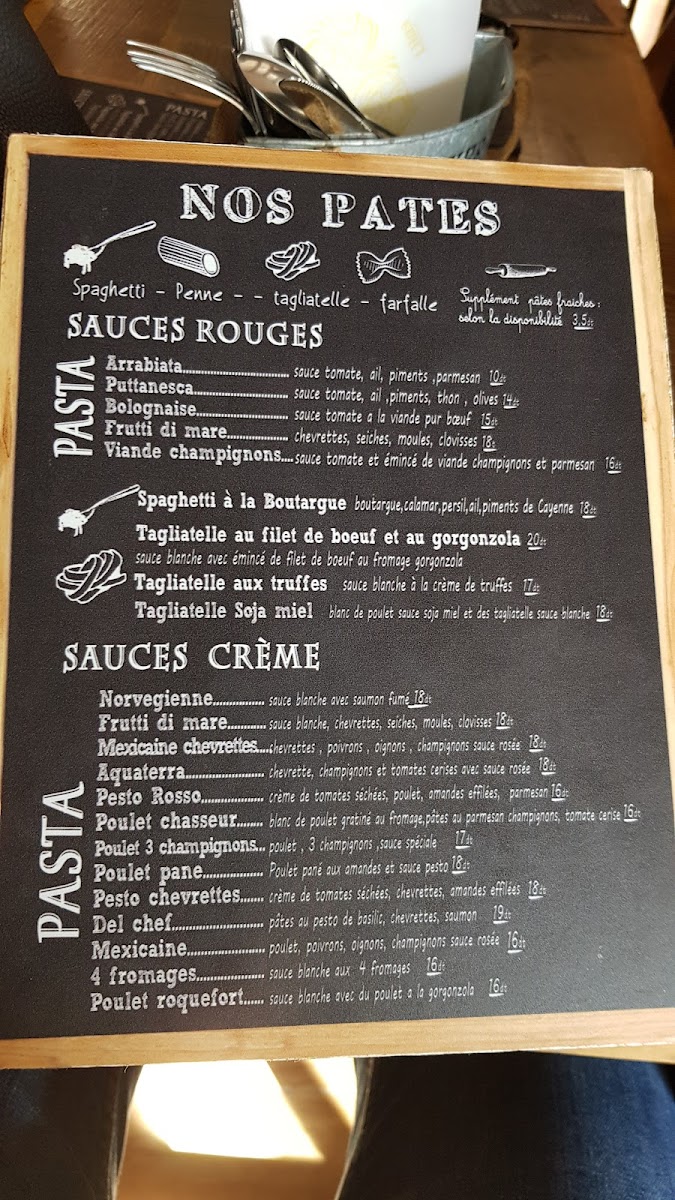 PASTA
NOS PATES
Spaghetti - Penne - - tagliatelle - farfalle
Supplément pâtes fraiches :
selon la disponibilité 3,5dt
SAUCES ROUGES
PASTA
Arrabiata........................... sauce tomate, ail, piments ,parmesan 10dt
Puttanesca........................ sauce tomate, ail ,piments, thon , olives 14dt
Bolognaise....................... sauce tomate a la viande pur bœuf 15dt
Frutti di mare............... chevrettes, seiches, moules, clovisses 18dt
Viande champignons....sauce tomate et émincé de viande champignons et parmesan 16dt
Spaghetti à la Boutargue boutargue,calamar,persil,ail,piments de Cayenne 18dt
Tagliatelle au filet de boeuf et au gorgonzola 20dt
sauce blanche avec émincé de filet de boeuf au fromage gorgonzola
Tagliatelle aux truffes sauce blanche à la crème de truffes 17dt
Tagliatelle Soja miel blanc de poulet sauce soja miel et des tagliatelle sauce blanche 18dt
SAUCES CRÈME
PASTA
Norvegienne............... sauce blanche avec saumon fumé 18dt
Frutti di mare........... sauce blanche, chevrettes, seiches, moules, clovisses 18dt
Mexicaine chevrettes....chevrettes , poivrons , oignons , champignons sauce rosée 18dt
Aquaterra....................... chevrette, champignons et tomates cerises avec sauce rosée 18dt
Pesto Rosso.................. crème de tomates séchées, poulet, amandes effilées, parmesan 16dt
Poulet chasseur........ blanc de poulet gratiné au fromage,pâtes au parmesan champignons, tomate cerise 16dt
Poulet 3 champignons... poulet , 3 champignons ,sauce spéciale 17dt
Poulet pane.................. Poulet pané aux amandes et sauce pesto 18dt
Pesto chevrettes....... crème de tomates séchées, chevrettes, amandes effilées 18dt
Del chef........................... pâtes au pesto de basilic, chevrettes, saumon 19dt
Mexicaine...................... poulet, poivrons, oignons, champignons sauce rosée 16dt
4 fromages.................... sauce blanche aux 4 fromages 16dt
Poulet roquefort...... sauce blanche avec du poulet a la gorgonzola 16dt